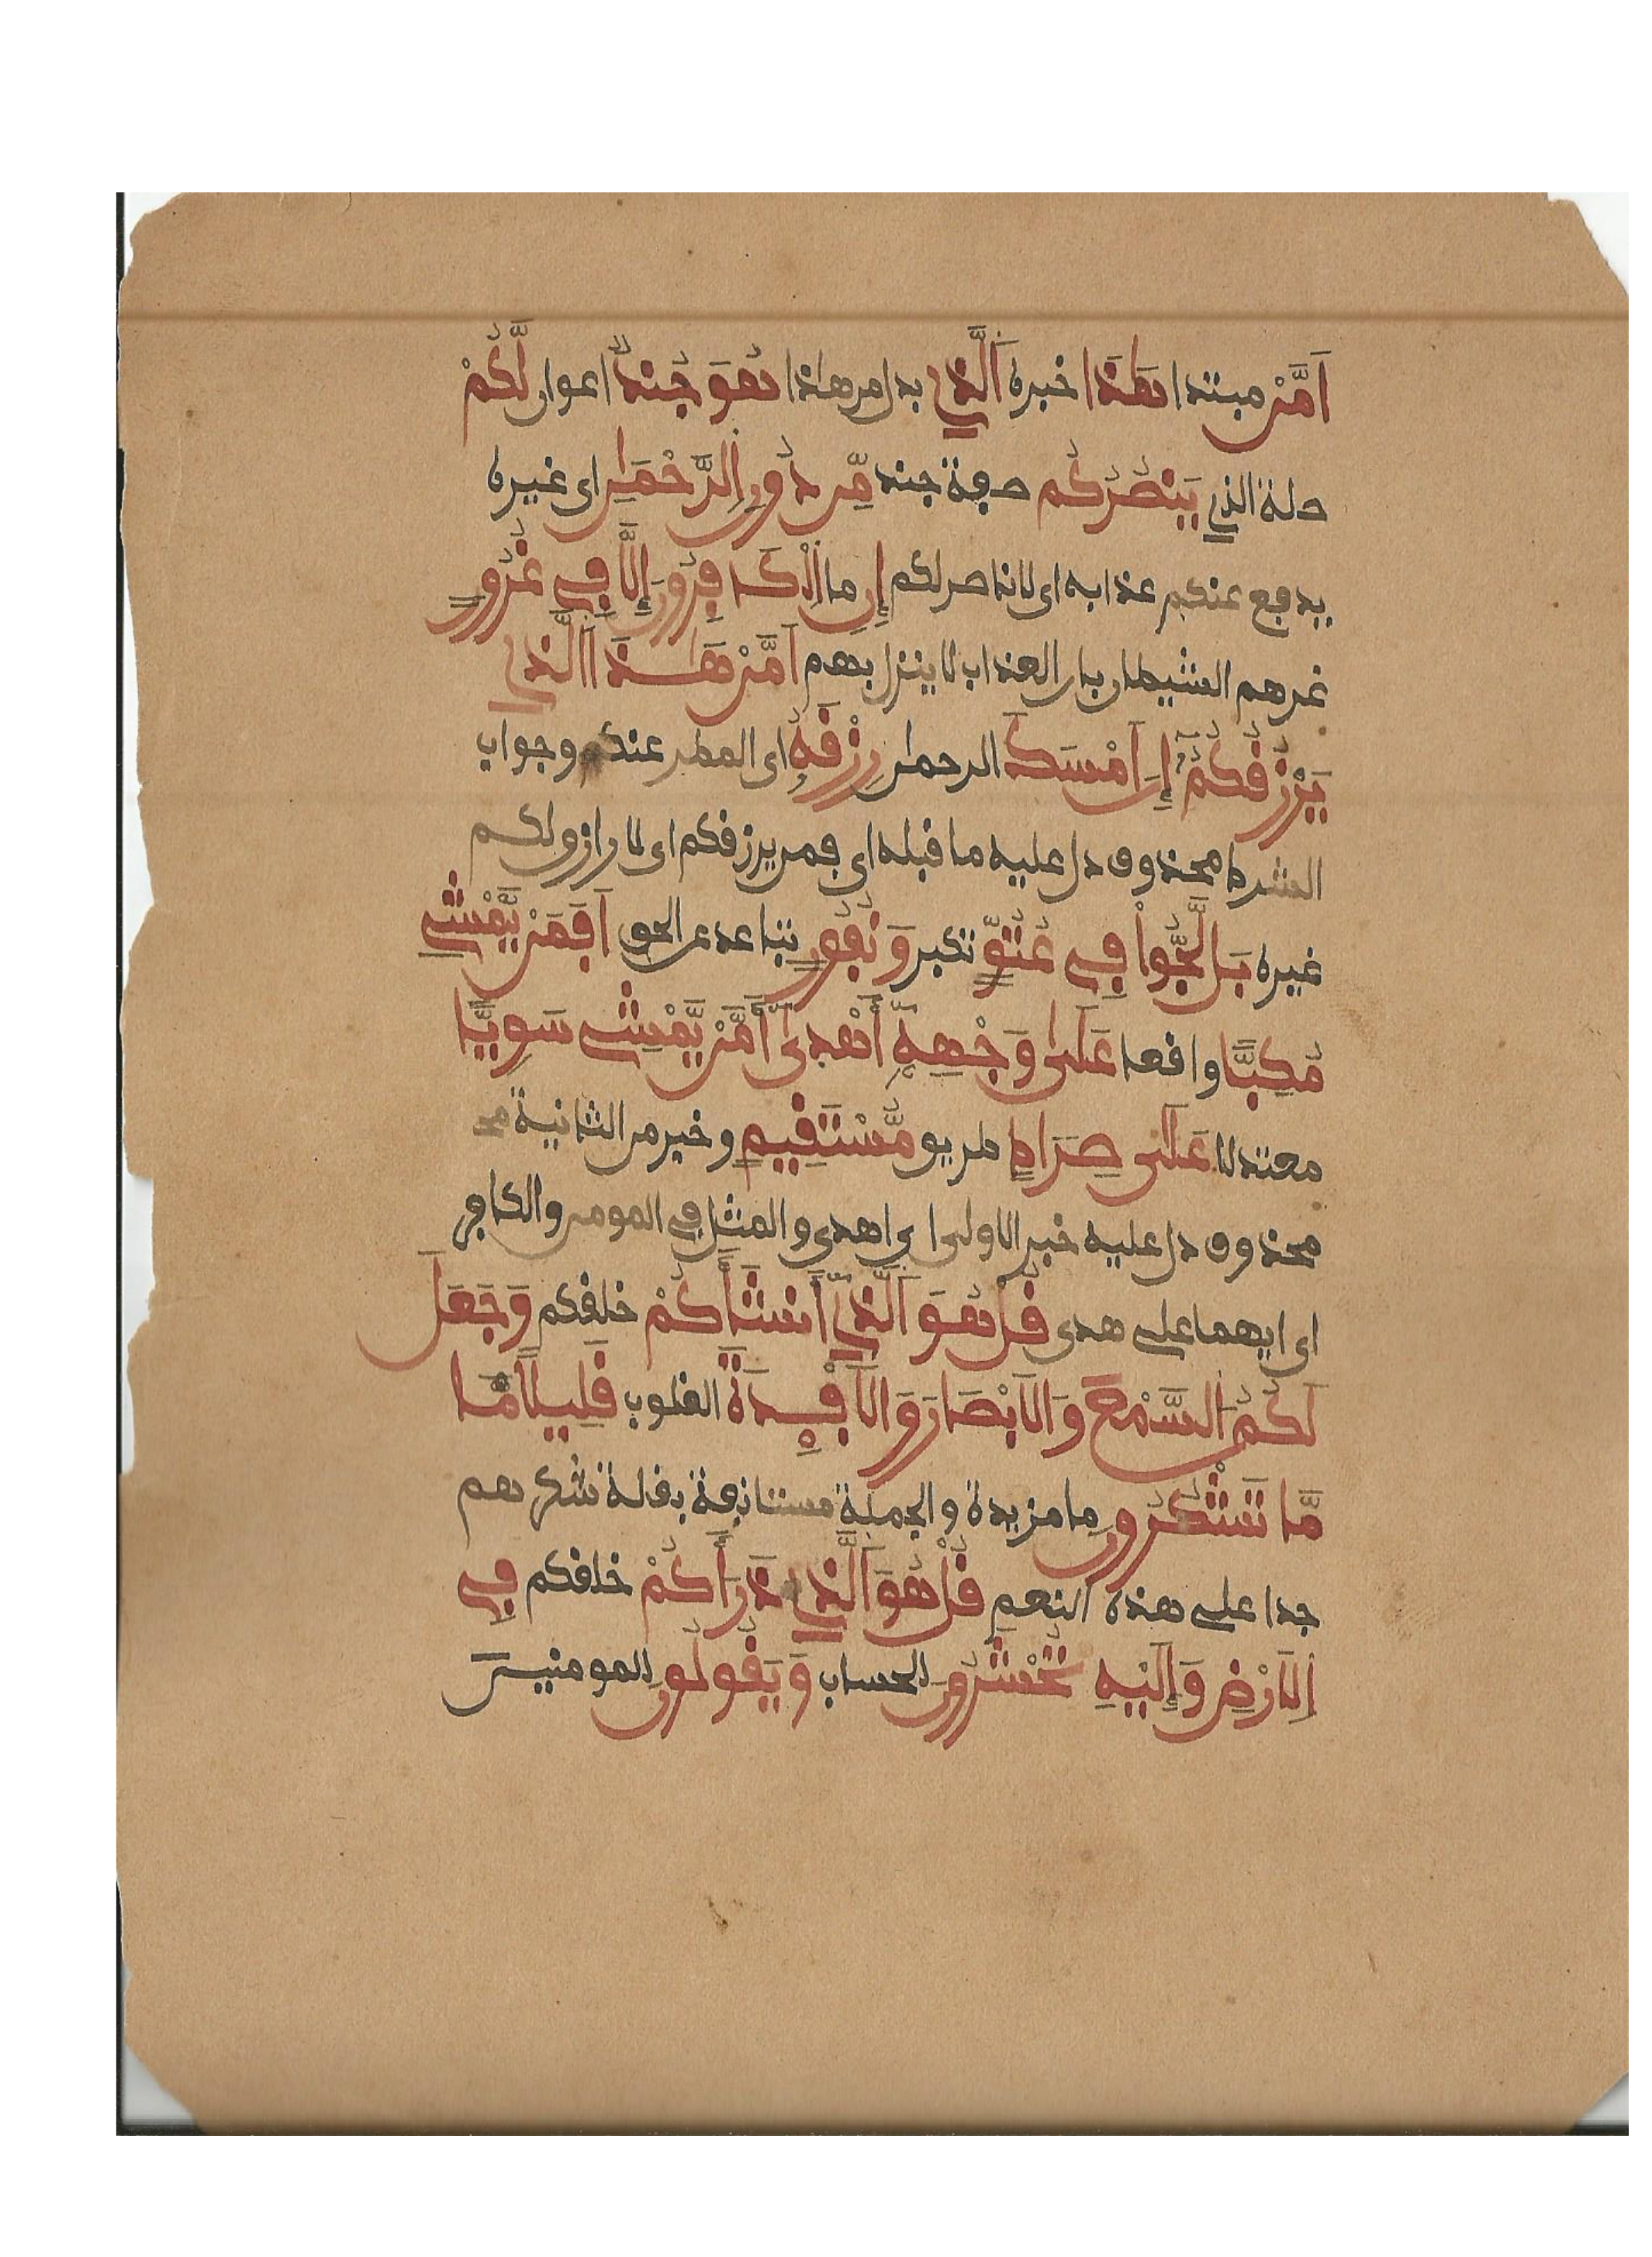 اَمَّنْ مبتدا هَٰذَا خبره اَ۬لذِے بدل من هاذا هُوَ جُندٞ اعوان لَّكُمْ
صلة الذي يَنصُرُكُم صفة جند مِّن دُونِ اِ۬لرَّحْمَٰنِ اى غيره
يدفع عنكم عذابه اى لا ناصر لكم إِنِ ما اِ۬لْكَٰفِرُونَ إِلَّا فِے غُرُورٍ
غرهم الشيطان بان العذاب لا ينزل بهم اَمَّنْ هَٰذَا اَ۬لذِے
يَرْزُقُكُمُۥٓ إِنَ اَمْسَكَ الرحمان رِزْقَهُۥ اى المطر عنكم وجواب
الشرط محذوف دل عليه ما قبله اى فمن يرزقكم اى لا رازق لكم
غيره بَل لَّجُّواْ فِے عُتُوّٖ تكبر وَنُفُورٍ تباعد عن الحق اَفَمَنْ يَّمْشِے
مُكِبًّا واقعا عَلَىٰ وَجْهِهِۦٓ أَهْدَىٰٓ أَمَّنْ يَّمْشِے سَوِيًّا
معتدلا عَلَىٰ صِرَاطٖ طريق مُّسْتَقِيمٖ وخبر من الثانية مح
محذوف دل عليه خبر الاولى اى اهدى والمثل في المومن والكافر
اى ايهما على هدى قُلْ هُوَ اَ۬لذِےٓ أَنشَأَكُمْ خلقكم وَجَعَلَ
لَكُمُ اُ۬لسَّمْعَ وَالَابْصَٰرَ وَالَافْـِٕدَةَ القلوب قَلِيلًا مَّا
مَّا تَشْكُرُونَ ما مزيدة والجملة مستانفة بقلة شكرهم
جدا على هذه النعم قُلْ هُوَ اَ۬لذِے ذَرَأَكُمْ خلقكم فِے
اِ۬لَارْضِ وَإِلَيْهِ تُحْشَرُونَ للحساب وَيَقُولُونَ للمومنين